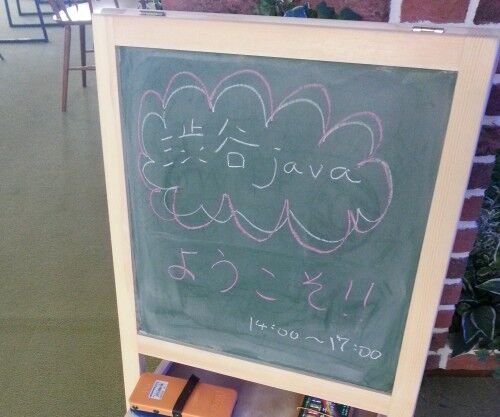 渋谷java
ようこそ!!
14:00～17:00